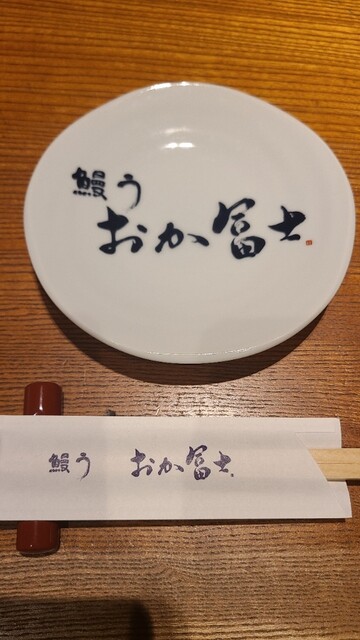 鰻う
おか冨士
鰻う おか冨士